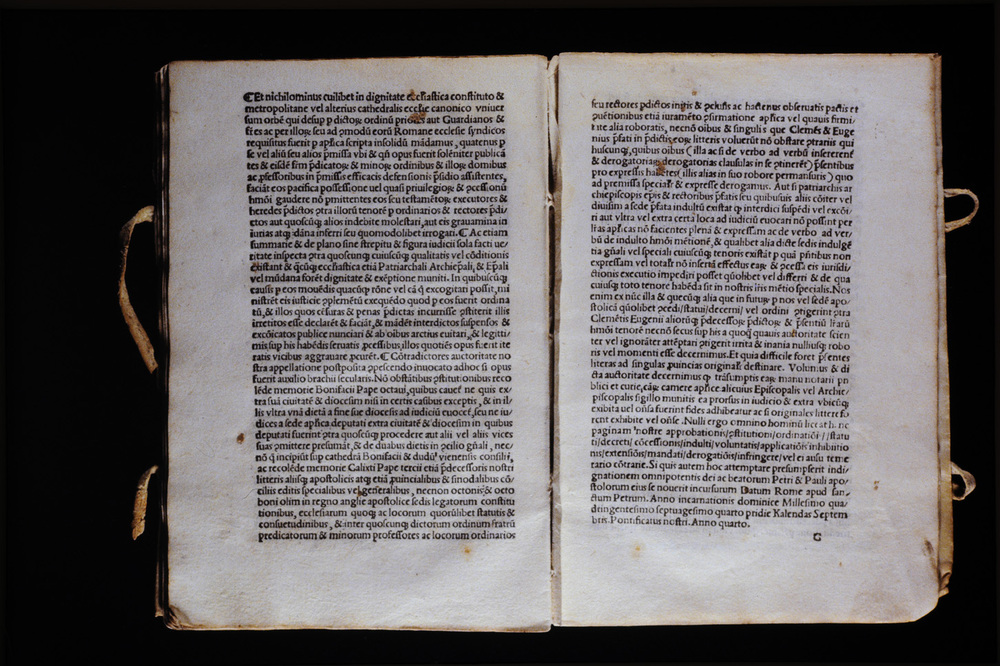 Et nichilominus cuilibet in dignitate eccłiastica constituto &
metropolitane vel alterius cathedralis eccłie canonico vniuer
sum orbē qui desup p̄dictoꝝ ordinū priores aut Guardianos &
requisitus fuerit p apłica scripta insolidū mādamus, quatenus p
se vel aliū seu alios p̄missa vbi & qn̄ opus fuerit solēniter publicā
tes & eisdē frm̄ p̄dicatoꝝ & minoꝝ ordinibus & illoꝝ domibus
ac ꝓfessoribus in p̄missis efficacis defensionis p̄sidio assistentes,
faciāt eos pacifica possessione vel quasi priuilegioꝝ & ꝓcessionū
hmōi gaudere nō pmittentes eos seu testamētoꝝ executores &
heredes p̄dictos ꝯtra illorū tenorē p ordinarios & rectores p̄di
ctos aut quoscūqꝫ alios indebite molestari, aut eis grauamina in
iurias atqꝫ dāna inferri seu quomodolibet irrogari. Ac etiam
summarie & de plano sine strepitu & figura iudicii sola facti ue
ritate inspecta ꝯtra quoscunqꝫ cuiuscūqꝫ qualitatis vel cōditionis
existant & qͣcūqꝫ eccłiastica etiā Patriarchali Archiep̄ali, & Ep̄ali
vel mūdana forēt dignitate & exēptione muniti. In quibuscūqꝫ
causis p eos mouēdis quacūqꝫ rōne vel cā qͣ excogitari possit, mi
nistrēt eis iusticie ꝯplemētū exequēdo quod p eos fuerit ordina
tū, & illos quos cēsuras & penas p̄dictas incurrisse ꝯstiterit illis
irretitos esse declarēt & faciāt, & mādēt interdictos suspensos &
excōicatos publice nunciari & ab oibus arctius euitari, & legitti
mis sup his habēdis seruatis ꝓcessibus, illos quotiēs opus fuerit ite
ratis vicibus aggrauare ꝓcurēt. Cōtradictores auctoritate no
stra appellatione postposita ꝯpescendo inuocato adhoc si opus
fuerit auxilio brachii secularis. Nō obstātibus ꝯstitutionibus reco
lēde memorie Bonifacii Pape octaui, quibus cauet̄ ne quis ex
tra suā ciuitatē & diocesim nisi in certis casibus exceptis, & in il
lis vltra vnā dietā a fine sue diocesis ad iudiciū euocet̄, seu ne iu
dices a sede apłica deputati extra ciuitatē & diocesim in quibus
deputati fuerint ꝯtra quoscūqꝫ procedere aut alii vel aliis vices
suas ꝯmittere presumāt, & de duabus dietis in ꝯcilio gn̄ali, nec
nō qͣ incipiūt sup cathedrā Bonifacii & dudū vienensis consilii,
ac recolēde memorie Calixti Pape tercii etiā p̄decessoris nostri
litteris aliisqꝫ apostolicis atqꝫ etiā ꝓuincialibus & sinodalibus cō
ciliis editis specialibus vel generalibus, necnon octonis & octo
boni olim in regno anglie apostolice sedis legatorum constitu
tionibus, ecclesiarum quoqꝫ ac locorum quorūlibet statutis &
consuetudinibus, & inter quoscunqꝫ dictorum ordinum fratrū
predicatorum & minorum professores ac locorum ordinarios
seu rectores p̄dictos initis & ꝓclusis ac hactenus obseruatis pactis et
ꝯuētionibus etiā iuramēto ꝯfirmatione apłica vel quauis firmi
tate alia roboratis, necnō oibus & singulis que Clemēs & Euge
nius p̄fati in p̄dictis eoꝝ litteris voluerūt nō obstare ꝯtrariis qui
huscunqꝫ, quibus oibus (illa ac si de verbo ad verbū insererenť
& derogatoriaꝝ derogatorias clausulas in se ꝯtinerēt) p̄sentibus
pro expressis habētes (illis alias in suo robore permansuris) quo
ad premissa specialr̄ & expresse derogamus. Aut si patriarchis ar
chiepiscopis ep̄is & rectoribus p̄fatis seu quibusuis aliis cōiter vel
diuisim a sede p̄fata indultū existat qꝫ interdici suspēdi vel excōi
ri aut vltra vel extra certa loca ad iudiciū euocari nō possint per
łras apłicas nō facientes plenā & expressam ac de verbo ad ver
bū de indulto hmōi mētionē, & qualibet alia dicte sedis indulgē
tia gn̄ali vel speciali cuiuscūqꝫ tenoris existāt p quā p̄ntibus non
expressam vel totalr̄ nō insertā effectus eaꝝ & ꝓcessa eis iurisdi
ctionis executio impediri posset quōlibet vel differri & de qua
cuiusqꝫ toto tenore habēda sit in nostris łris mētio specialis. Nos
enim ex nūc illa & quecūqꝫ alia que in futuꝝ p nos vel sedē apo
stolicā quōlibet ꝯcedi/statui/decerni/ vel ordini ꝯtigerint ꝯtra
Clemētis Eugenii aliorūqꝫ p̄decessoꝝ p̄dictoꝝ & p̄sentiū łrarū
hmōi tenorē necnō secus sup his a quoqꝫ quauis auctoritate scien
ter vel ignorāter attēptari ꝯtigerit irrita & inania nulliusqꝫ robo
ris vel momenti esse decernimus. Et quia difficile foret p̄sentes
literas ad singulas ꝓuincias originalr̄ destinare. Volumus & di
cta auctoritate decernimus qꝫ trāsumptis eaꝝ manu notarii pu
blici et curie, eaꝝ camere apłice alicuius Episcopalis vel Archie
piscopalis sigillo munitis ea prorsus in iudicio & extra vbicūqꝫ
exibita vel oñsa fuerint fides adhibeatur ac si originales littere fo
rent exhibite vel oñse. Nulli ergo omnino hominū liceat hāc
paginam nostre approbationis/ꝯstitutionis/ordinatiōis/statu
ti/decreti/cōcessionis/indulti/voluntatis/applicatiōis inhibitio
nis/extensiōis/mandati/derogatiōis/infringere/vel ei ausu teme
rario cōtraire. Si quis autem hoc attemptare presumpserit indi
gnationem omnipotentis dei ac beatorum Petri & Pauli apo
stolorum eius se nouerit incursurum Datum Rome apud san
ctum Petrum. Anno incarnationis dominice Millesimo qua
dringentesimo septuagesimo quarto pridie Kalendas Septem
bris. Pontificatus nostri. Anno quarto.
G